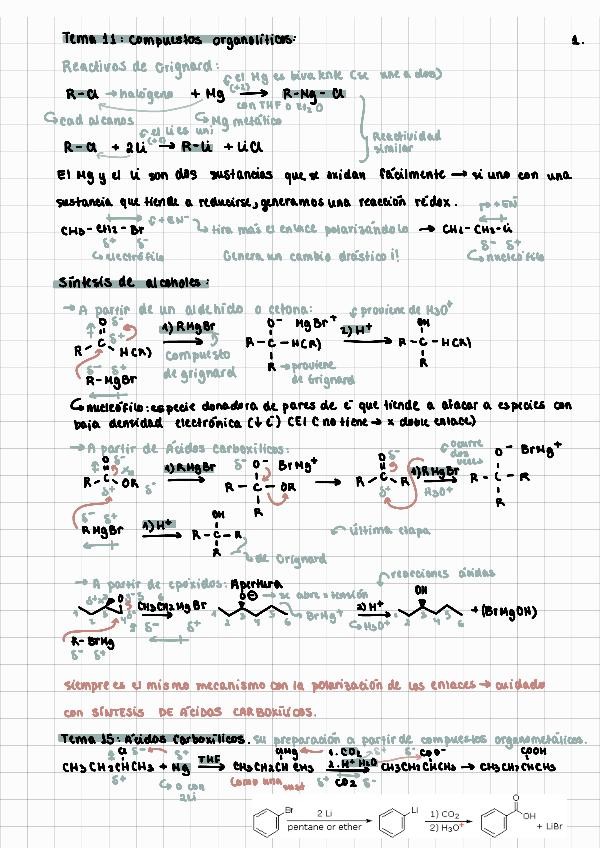 Tema 11: Compuestos organolíticos: 1.
Reactivos de Grignard:
el Mg es bivalente (se une a dos)
R-Cl → halógeno + Mg (+2) → R-Mg-Cl
con THF o Et2O
cad alcanos Mg metálico
el Li es uni
R-Cl + 2Li (+1) → R-Li + LiCl
Reactividad
similar
El Mg y el Li son dos sustancias que se oxidan fácilmente → si uno con una
sustancia que tiende a reducirse, generamos una reacción rédox.
C + EN⁻ → tira más el enlace polarizándolo
CH3-CH2-Br → CH2-CH2-Li
δ+ δ- δ- δ+
electrófilo Genera un cambio drástico i! nucleófilo
Síntesis de alcoholes:
→ A partir de un aldehído o cetona: proviene de H3O+
1) RMgBr O- MgBr+ 2) H+ OH
R-C H(R) R-C-H(R) R-C-H(R)
compuesto R → proviene R
de grignard de Grignard
R-MgBr
nucleófilo: especie donadora de pares de e- que tiende a atacar a especies con
baja densidad electrónica (↓ e-) (El C no tiene → x doble enlace)
→ A partir de Ácidos carboxílicos: ocurre
dos
1) RMgBr δ- O- BrMg+ O 1) RMgBr O- BrMg+
R-C-OR R-C-OR R-C-R H3O+ R-C-R
R R
δ- δ+ OH
RMgBr 1) H+ R-C-R última etapa
R
de Grignard
→ A partir de epóxidos: Apertura reacciones ácidas
→ se abre x tensión OH
CH3CH2MgBr BrMg+ 2) H+ + (BrMgOH)
H3O+
R-BrMg
δ- δ+
siempre es el mismo mecanismo con la polarización de los enlaces → cuidado
con SÍNTESIS DE ÁCIDOS CARBOXÍLICOS.
Tema 15: Ácidos carboxílicos. su preparación a partir de compuestos organometálicos.
Cl ClMg 1. CO2 COO- COOH
CH3CH2CHCH3 + Mg THF → CH3CH2CHCH3 2. H+ H2O → CH3CH2CHCH3 → CH3CH2CHCH3
o con Como una CO2
2Li
Br 2 Li Li 1) CO2 O
pentane or ether 2) H3O+ OH
+ LiBr